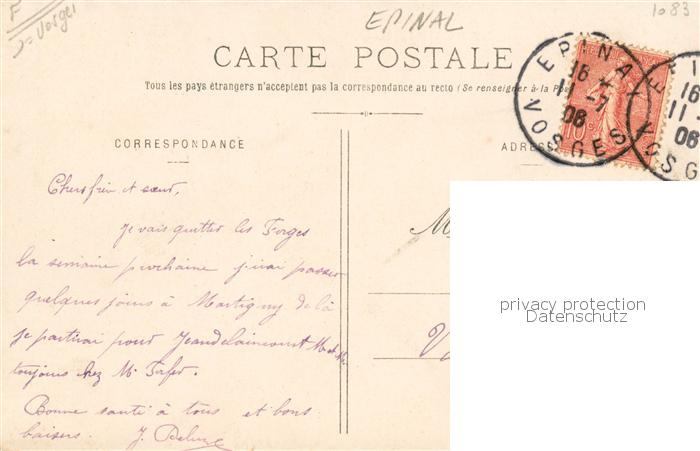 F
Vosges
EPINAL
1083
CARTE POSTALE
Tous les pays étrangers n'acceptent pas la correspondance au recto (Se renseigner à la Pos
CORRESPONDANCE
ADRESSE
EPINAL
16
11 -7
08
VOSGES
10c
E I
16
11
08
VOSG
Chers frère et sœur,
Je vais quitter les Forges
la semaine prochaine j'irai passer
quelques jours à Martigny de là
je partirai pour Jeandelaincourt M et M
toujours chez Mr
Bonne santé à tous et bons
baisers. J.
M
V
privacy protection
Datenschutz